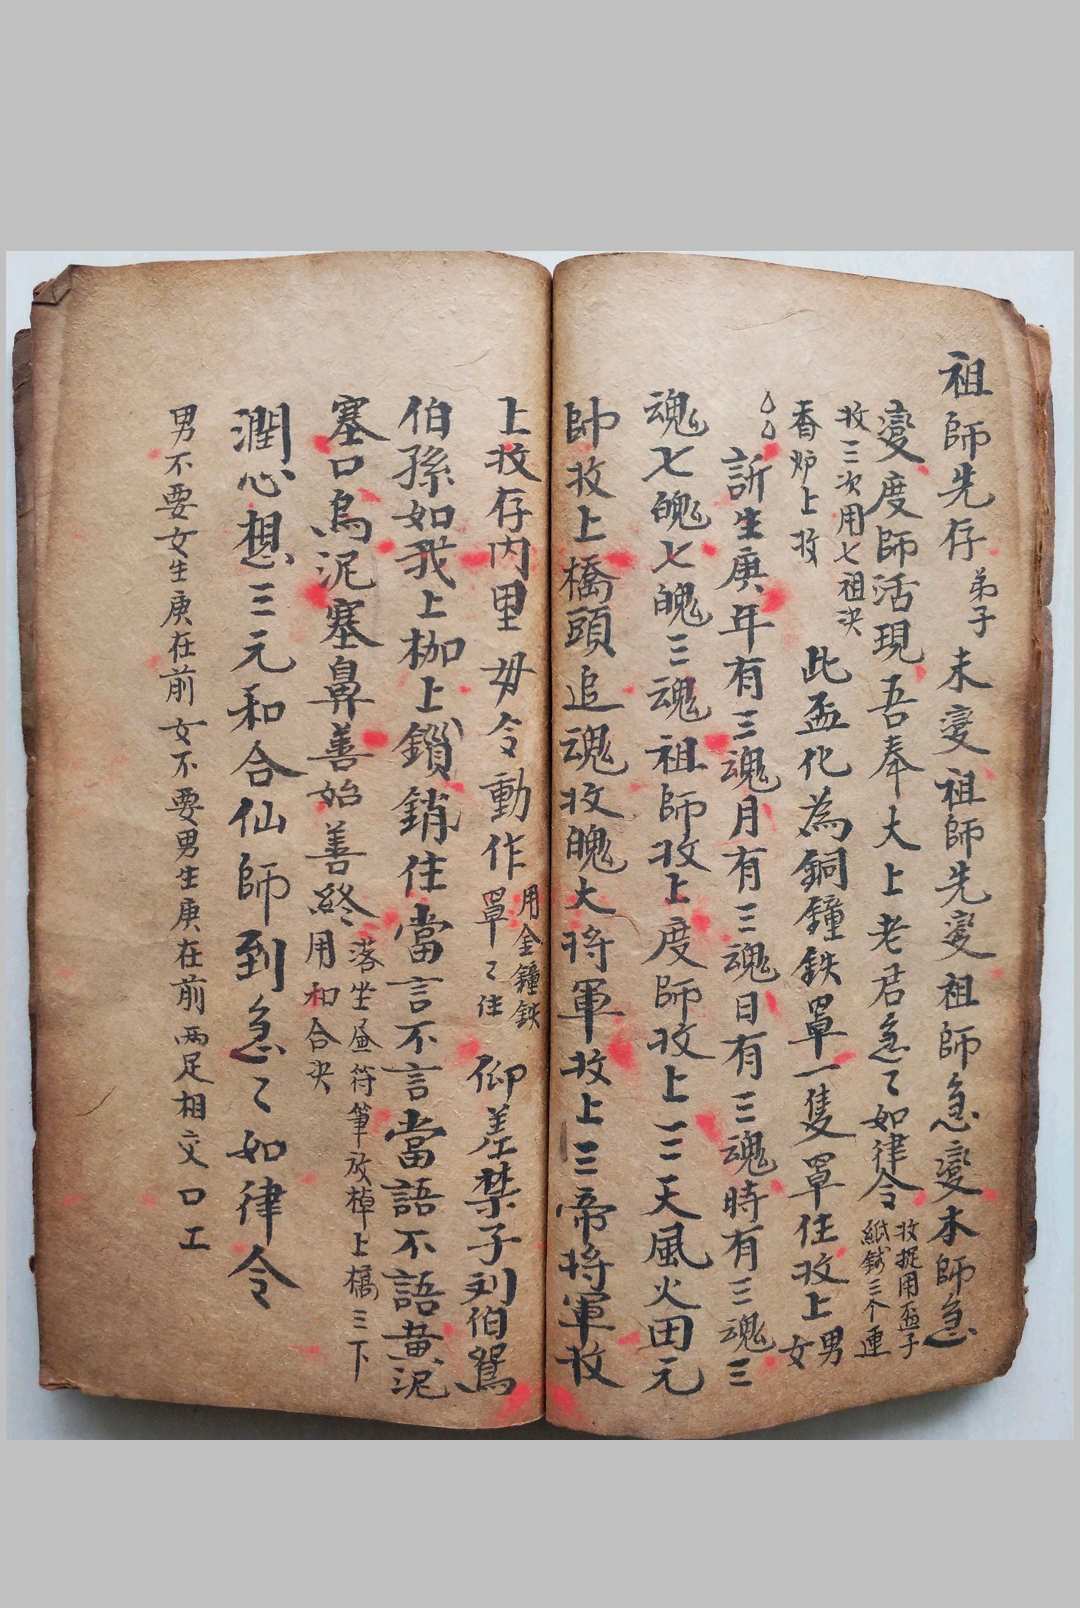 祖師先存弟子未変祖師先変祖師急變本師急
變度師活現吾奉大上老君急〻如律令收捉用盃子紙錢三个連
收三次用七祖決
香炉上收
此盃化為銅鐘鉄罩一隻罩住收上男女
訴生庚年有三魂月有三魂日有三魂時有三魂三
魂七魄七魄三魂祖師收上度師收上三天風火田元
帥收上橋頭追魂收魄大将軍收上三帝将軍收
上收存内里毋令動作用金鐘鉄罩〻住仰差禁子刘伯鴛
伯孫如我上枷上鎖銷住當言不言當語不語黄泥
塞口烏泥塞鼻善始善終落坐 符筆放棹上橋三下用和合決
潤心想三元和合仙師到急〻如律令
男不要女生庚在前女不要男生庚在前兩足相交口工